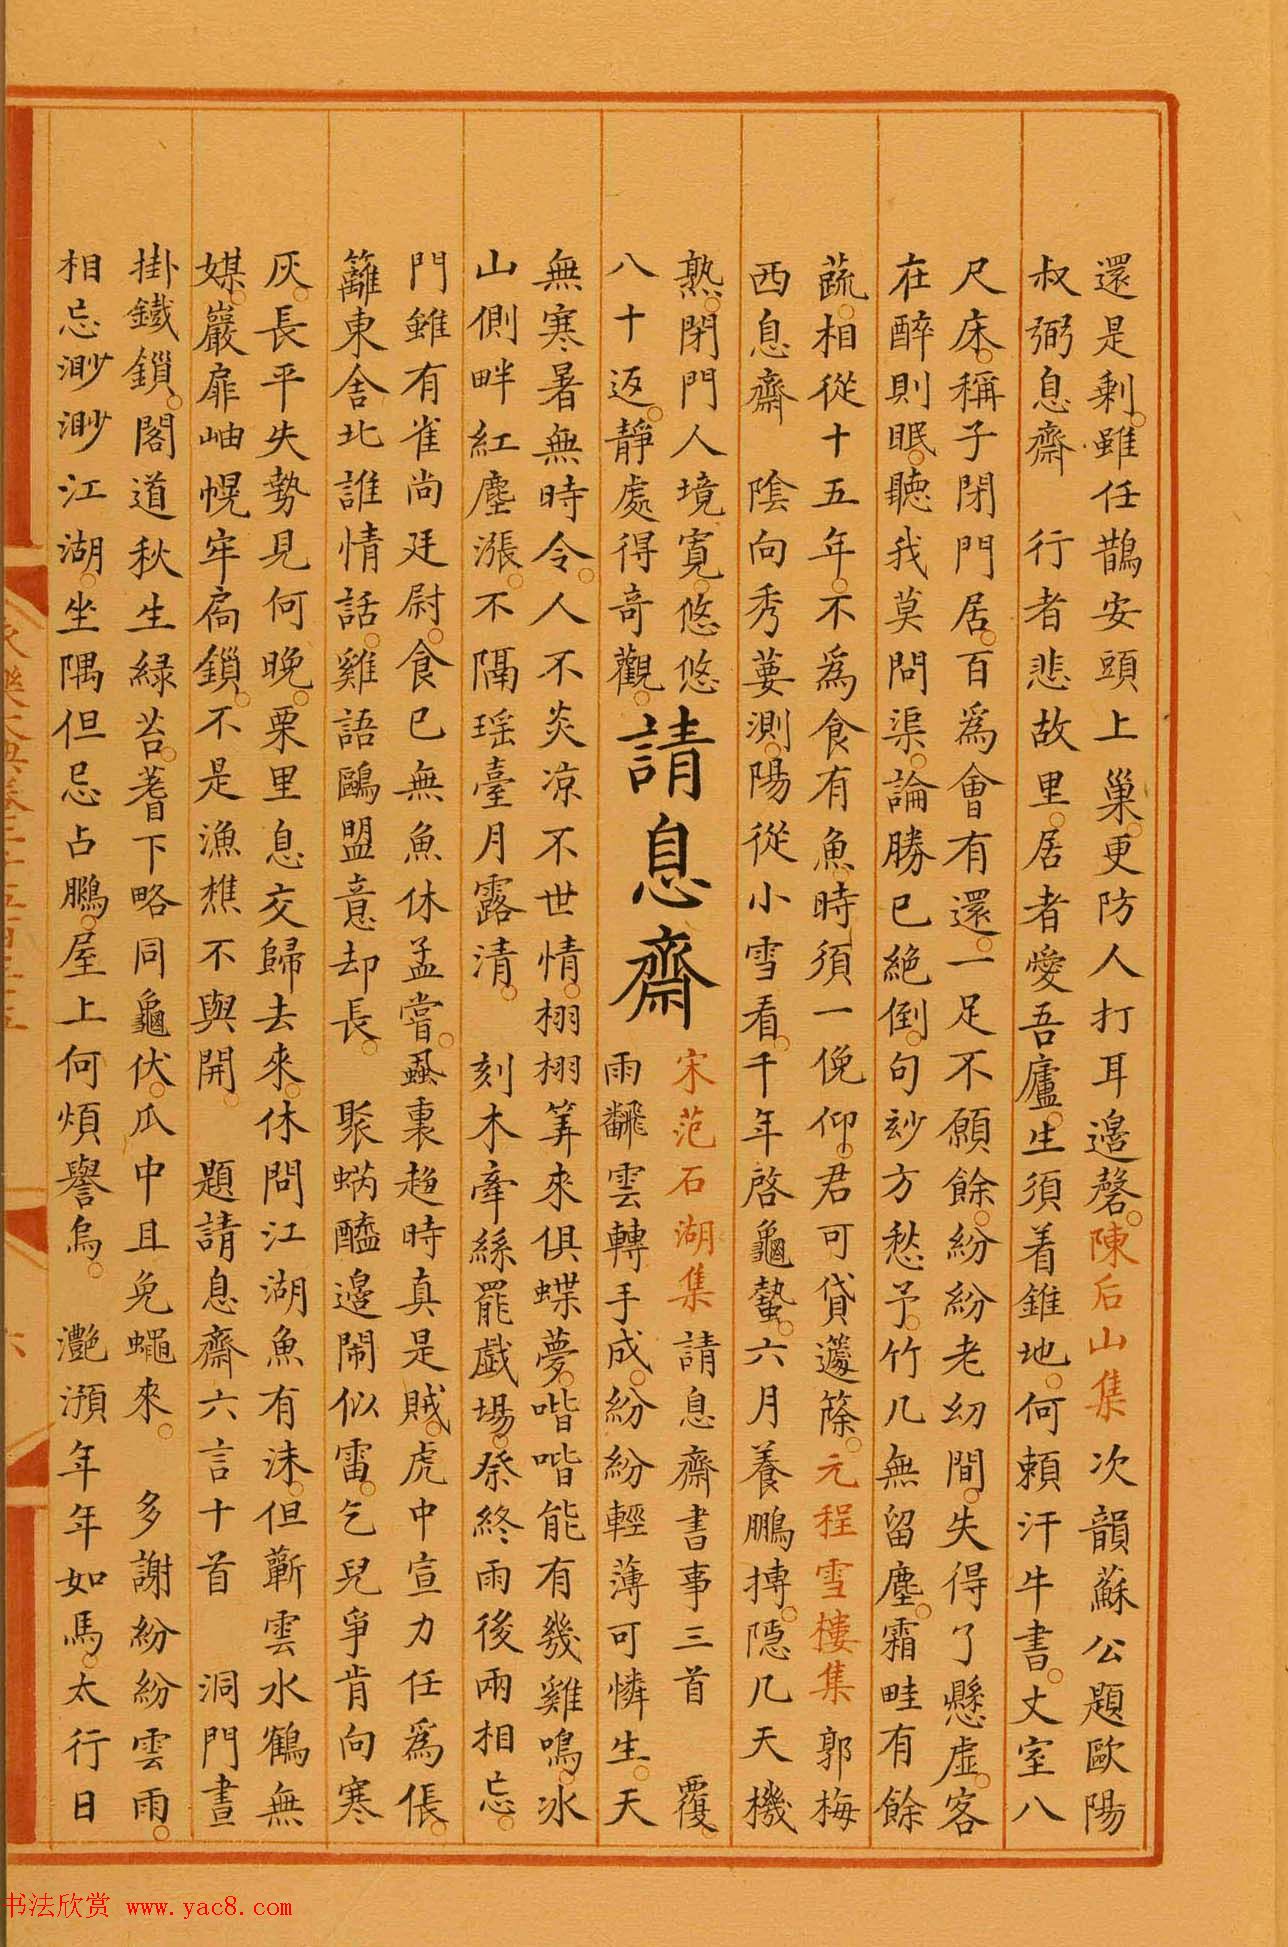 還是剩。雖任鵲安頭上巢。更防人打耳邊磬。陳后山集 次韻蘇公題歐陽
叔弼息齋 行者悲故里。居者愛吾廬。生須着錐地。何賴汗牛書。丈室八
尺床。稱子閉門居。百爲會有還。一足不願餘。紛紛老幼間。失得了懸虛。客
在醉則眠。聽我莫問渠。論勝已絶倒。句玅方愁予。竹几無留塵。霜畦有餘
蔬。相從十五年。不爲食有魚。時須一俛仰。君可貸蘧篨。元程雪樓集 郭梅
西息齋 陰向秀葽測。陽從小雪看。千年啓龜蟄。六月養鵬摶。隱几天機
熟。閉門人境寛。悠悠八十返。靜處得奇觀。
請息齋 宋范石湖集 請息齋書事三首 覆
雨飜雲轉手成。紛紛輕薄可憐生。天
無寒暑無時令。人不炎凉不世情。栩栩筭來俱蝶夢。喈喈能有幾雞鳴。冰
山側畔紅塵漲。不隔瑶臺月露清。 刻木牽絲罷戲場。祭終雨後兩相忘。
門雖有雀尚廷尉。食已無魚休孟嘗。蝨裏趍時真是賊。虎中宣力任爲倀。
籬東舍北誰情話。雞語鷗盟意却長。 聚蜹醯邊鬧似雷。乞兒爭肯向寒
灰。長平失勢見何晚。栗里息交歸去來。休問江湖魚有沫。但蘄雲水鶴無
媒。巖扉岫幌牢扃鎖。不是漁樵不與開。 題請息齋六言十首 洞門晝
掛鐵鎖。閣道秋生緑苔。蓍下略同龜伏。瓜中且免蠅來。 多謝紛紛雲雨。
相忘渺渺江湖。坐隅但忌占鵬。屋上何煩譽烏。 灧澦年年如馬。太行日
永樂大典卷二千五百三十五
六
书法欣赏 www.yac8.com